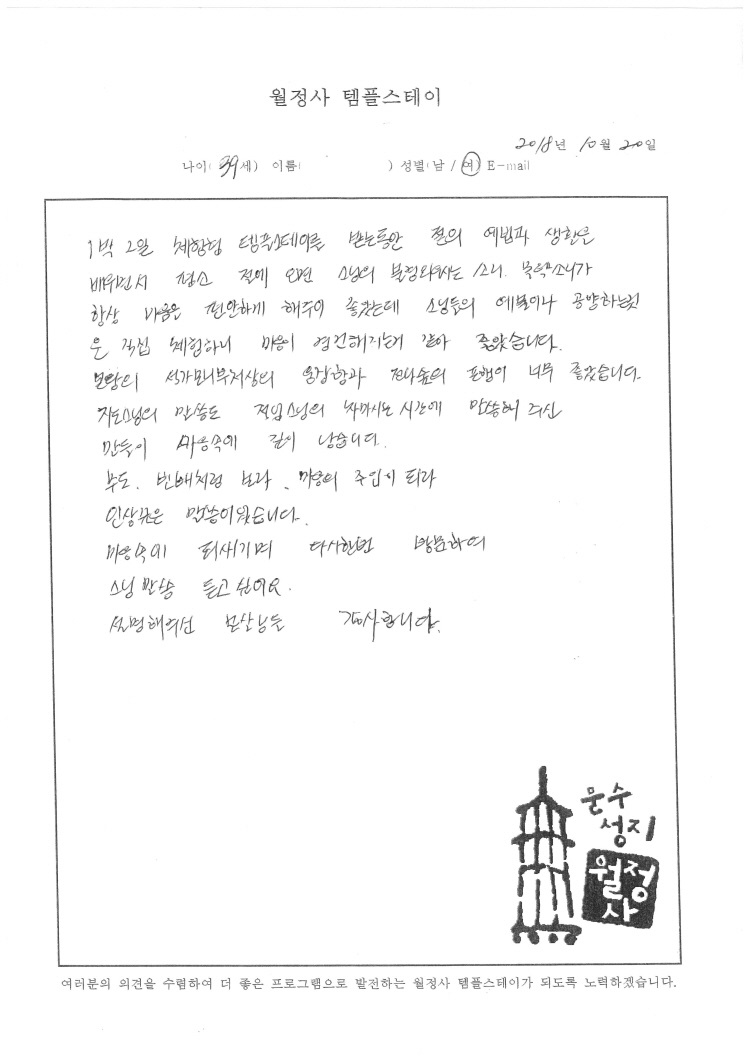 월정사 템플스테이
2018년 10월 20일
나이( 39세) 이름( ) 성별(남 / 여) E-mail
1박 2일 체험형 템플스테이를 받는동안 절의 예법과 생활을
배우면서 평소 절에 오면 스님의 불경외우는 소리. 목탁소리가
항상 마음을 편안하게 해주어 좋았는데 스님들의 예불이나 공양하는것
을 직접 체험하니 마음이 경건해지는거 같아 좋았습니다.
석가모니부처상의 웅장함과 전나무숲의 포행이 너무 좋았습니다.
지도스님의 말씀도 스님의 차마시는 시간에 말씀해 주신
말들이 마음속에 깊이 남습니다.
부도. 빈배처럼 보라. 마음의 주인이 되라
인상깊은 말씀이였습니다.
마음속에 되새기며 다시한번 방문하여
스님 말씀 듣고 싶어요.
설명해주신 보살님들 감사합니다.
문수
성지
월정
사
여러분의 의견을 수렴하여 더 좋은 프로그램으로 발전하는 월정사 템플스테이가 되도록 노력하겠습니다.